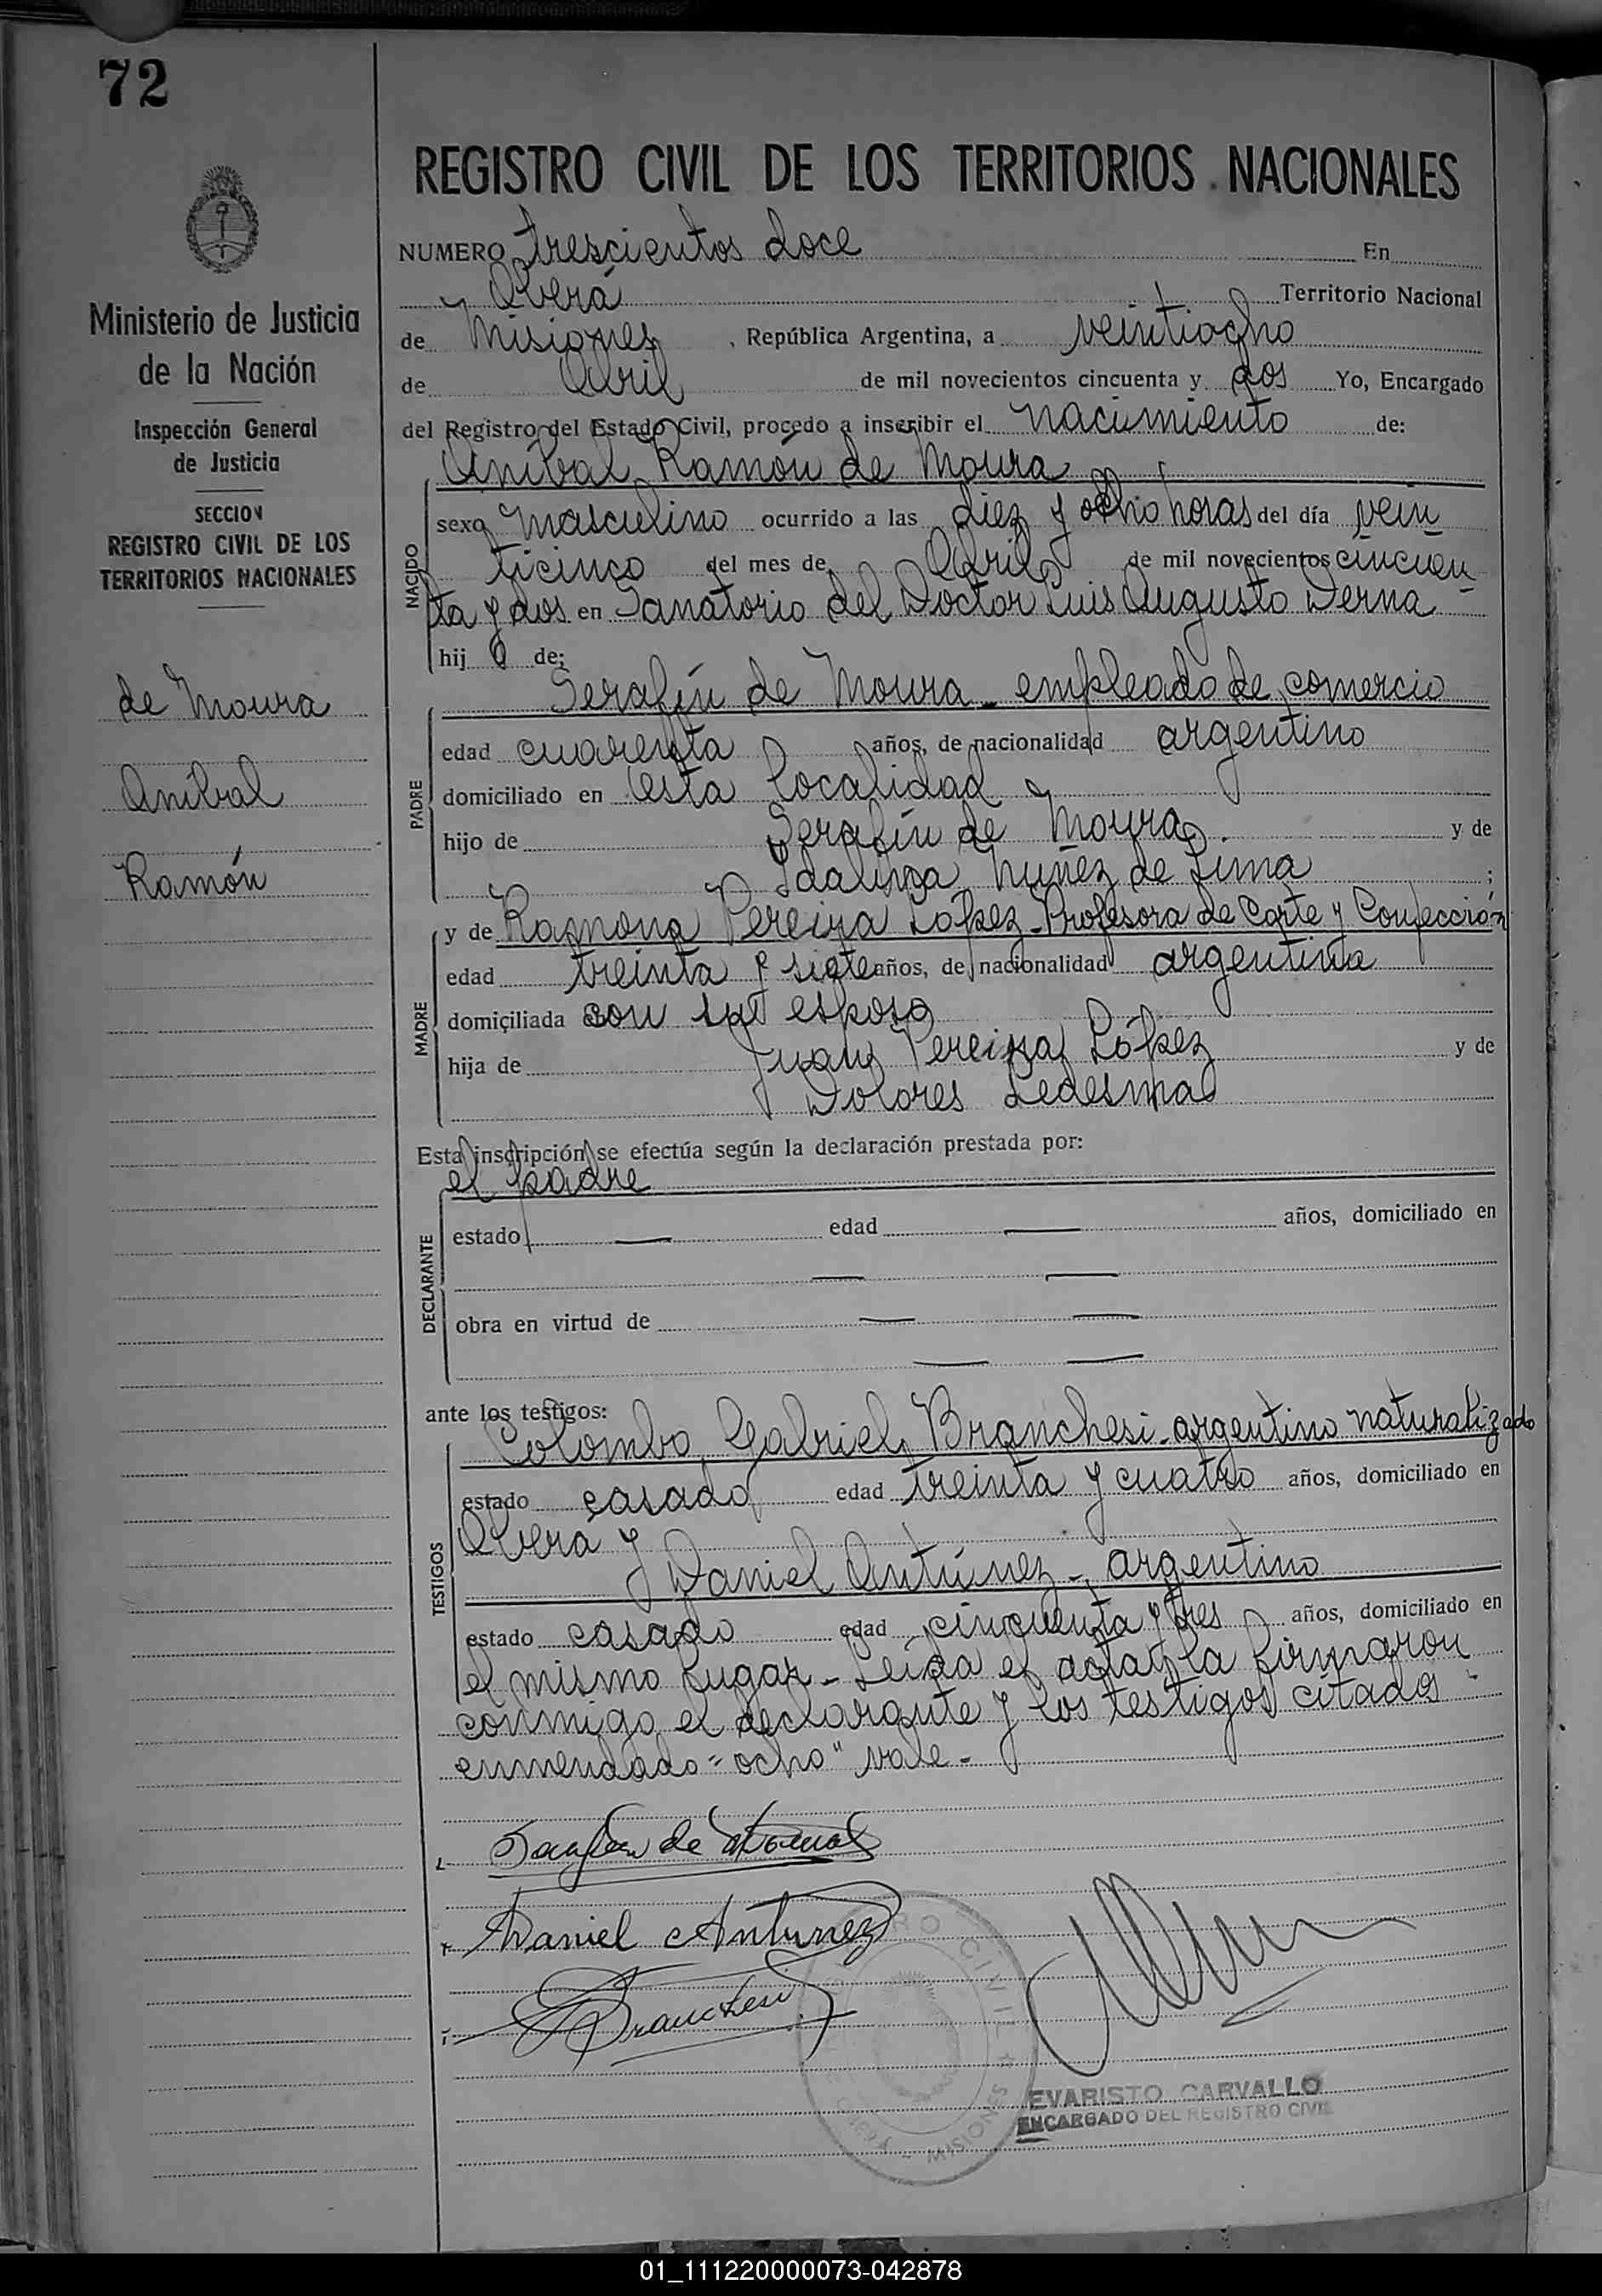 72
REGISTRO CIVIL DE LOS TERRITORIOS NACIONALES
NUMERO trescientos doce En
Oberá Territorio Nacional
de Misiones, República Argentina, a veintiocho
de Abril de mil novecientos cincuenta y dos Yo, Encargado
del Registro del Estado Civil, procedo a inscribir el nacimiento de:
Aníbal Ramón de Moura
NACIDO
sexo masculino ocurrido a las diez y ocho horas del día vein
ticinco del mes de Abril de mil novecientos cincuen
ta y dos en Sanatorio del Doctor Luis Augusto Derna
hij o de:
PADRE
Serafín de Moura - empleado de comercio
edad cuarenta años, de nacionalidad argentino
domiciliado en esta localidad
hijo de Serafín de Moura y de
Idalina Nuñez de Lima ;
MADRE
y de Ramona Pereira López - Profesora de Corte y Confección
edad treinta y siete años, de nacionalidad argentina
domiciliada con su esposo
hija de Juan Pereira López y de
Dolores Ledesma
Esta inscripción se efectúa según la declaración prestada por:
el padre
DECLARANTE
estado — edad — años, domiciliado en
— —
obra en virtud de — —
— —
ante los testigos:
TESTIGOS
Colombo Gabriel Branchesi - argentino naturalizado
estado casado edad treinta y cuatro años, domiciliado en
Oberá y
Daniel Antúnez - argentino
estado casado edad cincuenta y tres años, domiciliado en
el mismo lugar - Leída el acta la firmaron
conmigo el declarante y los testigos citados -
enmendado "ocho" vale -
Serafín de Moura
Daniel Antunez
Branchesi
REGISTRO CIVIL
OBERA - MISIONES
EVARISTO CARVALLO
ENCARGADO DEL REGISTRO CIVIL
Ministerio de Justicia
de la Nación
Inspección General
de Justicia
SECCION
REGISTRO CIVIL DE LOS
TERRITORIOS NACIONALES
de Moura
Aníbal
Ramón
01_111220000073-042878